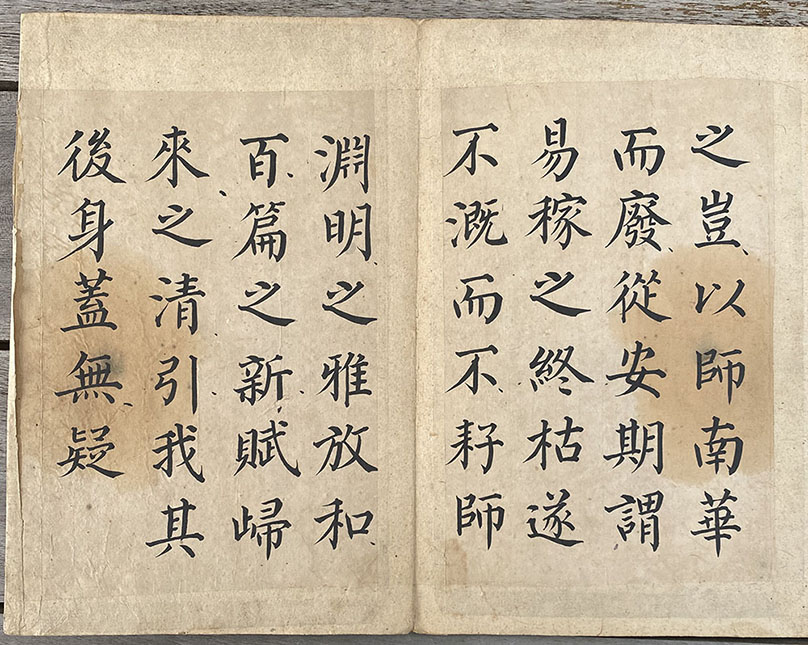 之豈以師南華
而廢從安期謂
易稼之終枯遂
不溉而不耔師
淵明之雅放和
百篇之新賦㱕
來之清引我其
後身蓋無疑